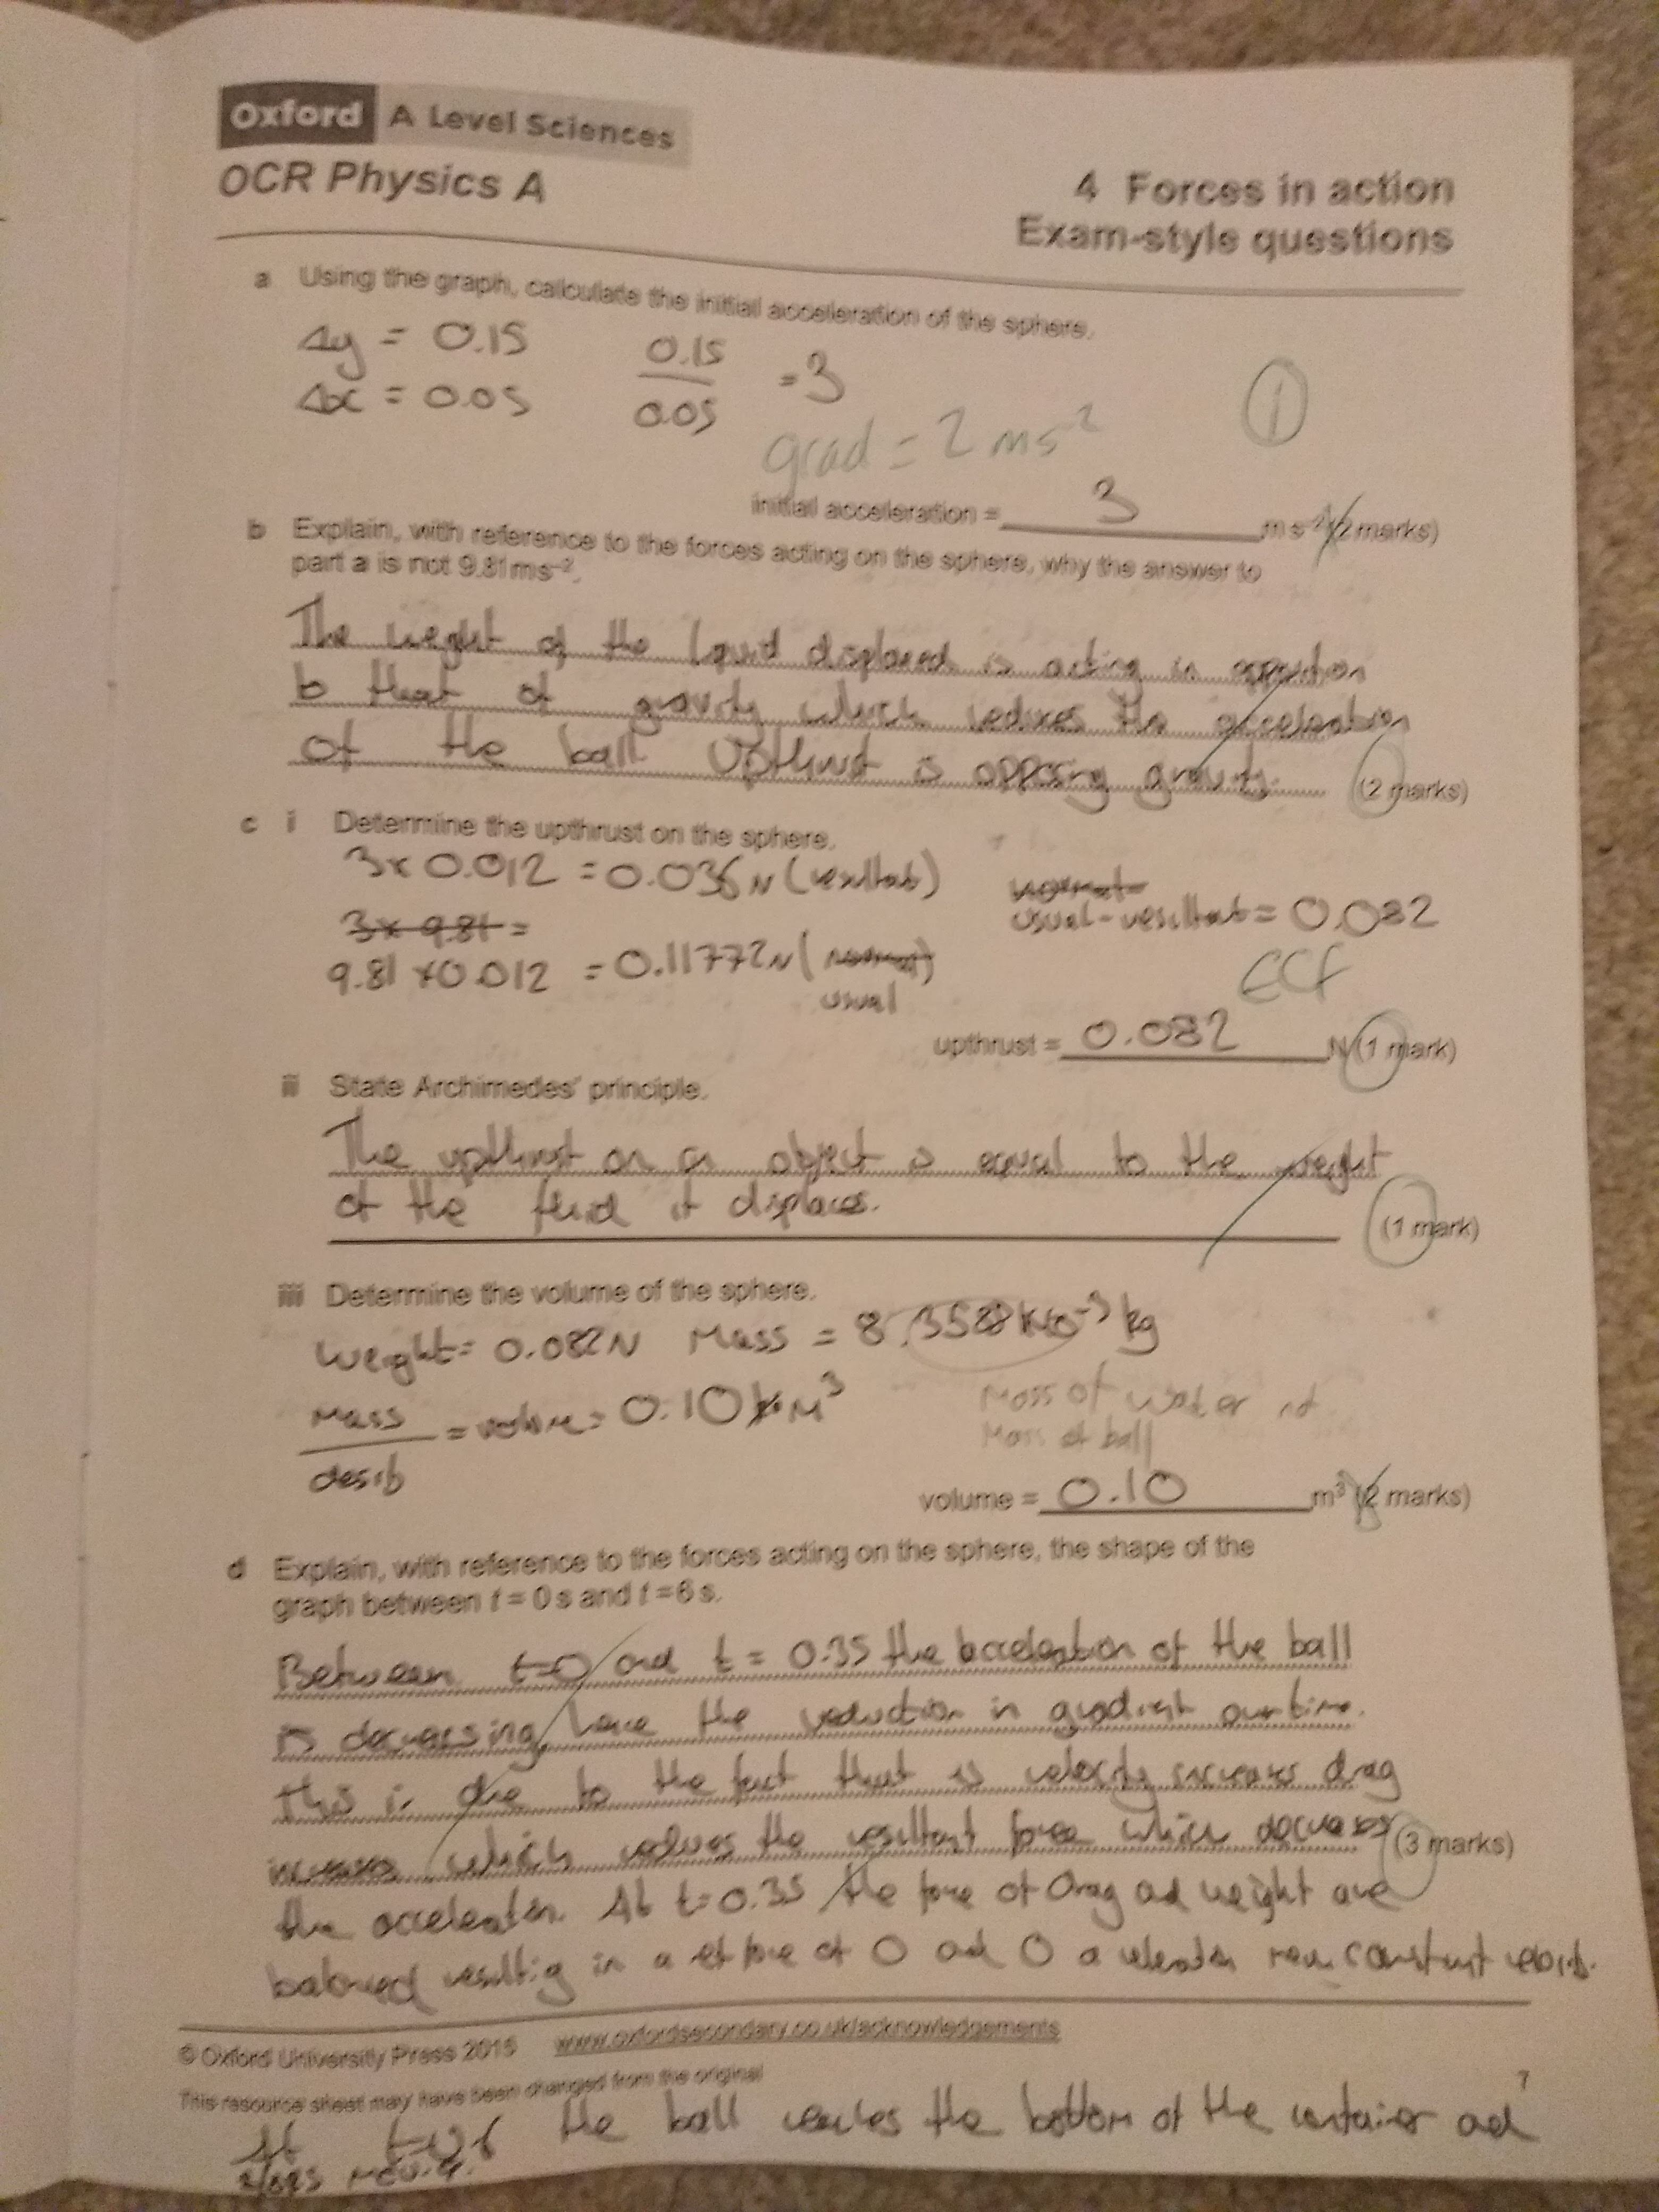 Oxford A Level Sciences
OCR Physics A
4 Forces in action
Exam-style questions
a Using the graph, calculate the initial acceleration of the sphere.
Δy = 0.15
Δx = 0.05
0.15
0.05
= 3
1
grad = 2 ms⁻²
initial acceleration = 3 m s⁻² (2 marks)
b Explain, with reference to the forces acting on the sphere, why the answer to
part a is not 9.81 m s⁻².
The weight of the liquid displaced is acting in opposition
to that of gravity which reduces the acceleration
of the ball. Upthrust is opposing gravity. (2 marks)
c i Determine the upthrust on the sphere.
3 x 0.012 = 0.036 N (resultant)
3 x 9.81 =
9.81 x 0.012 = 0.11772 N (normal)
usual
normal
usual - resultant = 0.082
ECF
upthrust = 0.082 N (1 mark)
ii State Archimedes' principle.
The upthrust on an object is equal to the weight
of the fluid it displaces.
(1 mark)
iii Determine the volume of the sphere.
Weight = 0.082 N Mass = 8.358 x 10⁻³ kg
Mass
= volume = 0.10 M³
Mass of water not
Mass of ball
volume = 0.10 m³ (2 marks)
d Explain, with reference to the forces acting on the sphere, the shape of the
graph between t = 0 s and t = 6 s.
Between t=0 and t = 0.35 the acceleration of the ball
is decreasing, hence the reduction in gradient over time.
this is due to the fact that as velocity increases drag
increases which reduces the resultant force which decreases (3 marks)
the acceleration. At t=0.35 the force of Drag and weight are
balanced resulting in a net force of 0 and 0 constant
© Oxford University Press 2015 www.oxfordsecondary.co.uk/acknowledgements
This resource sheet may have been changed from the original
7
At the ball reaches the bottom of the container and
stops moving.